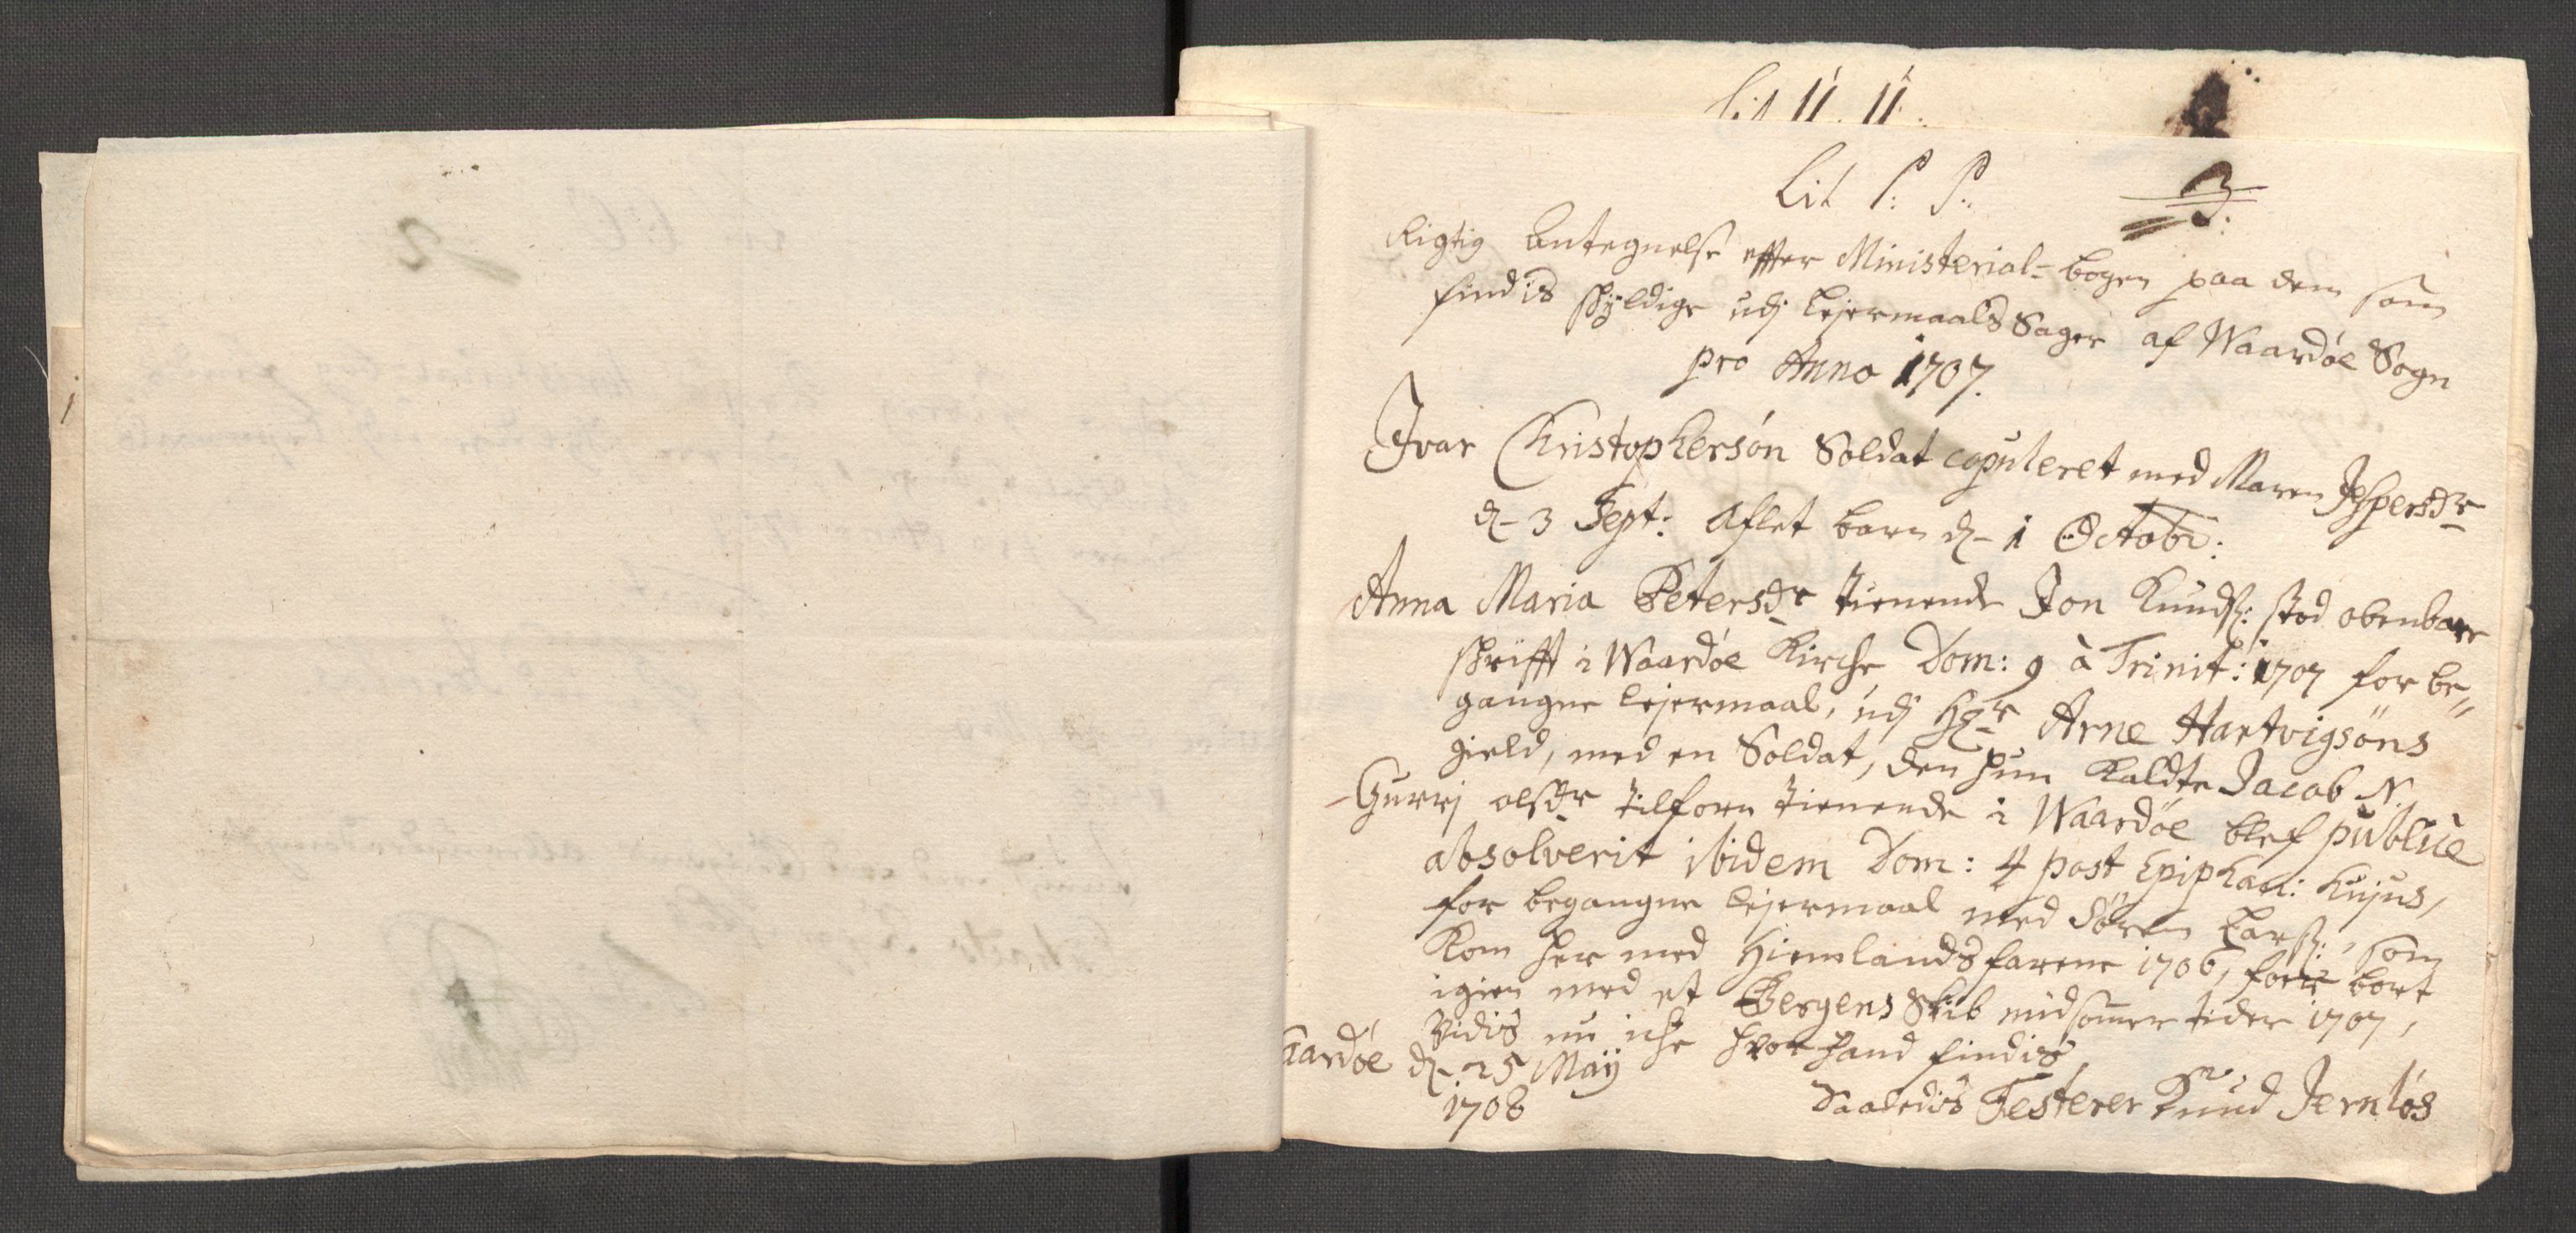 Lit U. U.
Lit P: P:
3.
Rigtig Antegnelse effter Ministerial-bogen paa dem som
findis skyldige udj Lejermaals Sager af Waardöe Sogn
pro Anno 1707.
Ivar Christophersön Soldat copuleret med Maren Jespersdr
d. 3 Sept: Aflet barn d. 1 Octobr:
Anna Maria Petersdr tienende Jon Knuds: stod obenbare
skrifft i Waardöe Kirche Dom: 9 à Trinit: 1707 for be-
gangne lejermaal, udj Hr Arne Hartvigsöns
gield, med en Soldat, den hun kaldte Jacob N.
Gurrj olsdr tilforn tienende i Waardöe blef publice
absolverit ibidem Dom: 4 post Epiphan: hujus,
for begangne lejermaal med Sören Larss: som
kom her med Hiemlandsfarene 1706, foer bort
igien med et Bergens Skib midsommers tider 1707,
vidis nu iche hvor hand findis
aardöe d. 25 Maij
1708
Saaledis Testerer Knud Jernlös
1
2